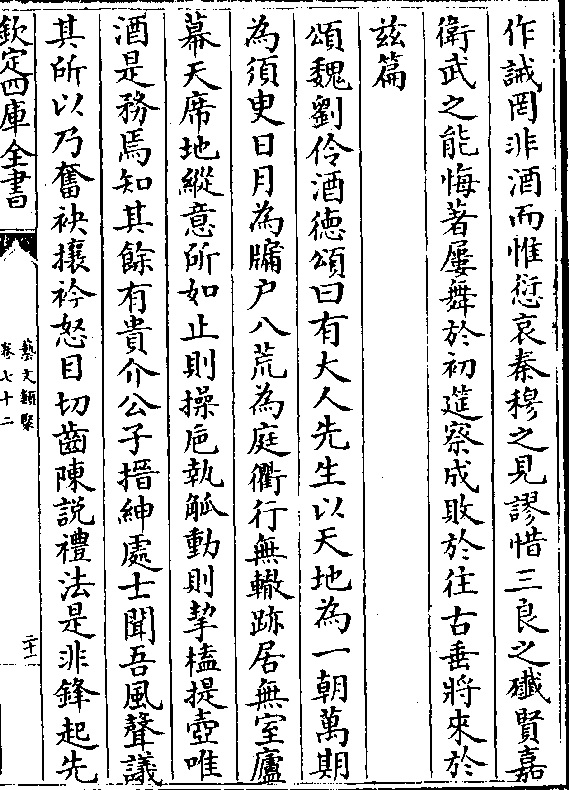 作誡罔非酒而惟愆哀秦穆之見謬惜三良之殱賢嘉
衛武之能悔著屢舞於初筵察成敗於往古垂將來於
兹篇
頌魏劉伶酒徳頌曰有大人先生以天地為一朝萬期
為須臾日月為牖户八荒為庭衢行無轍跡居無室廬
幕天席地縱意所如止則操巵執觚動則挈榼提壺唯
酒是務焉知其餘有貴介公子搢紳處士聞吾風聲議
其所以乃奮袂攘衿怒目切齒陳説禮法是非鋒起先
欽定四庫全書
藝文類聚
卷七十二
二十一